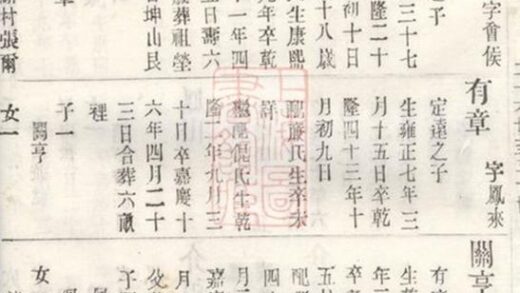 字會侯
之子
三十七
隆二十
初十日
十八歲
生康熙
元年卒乾
十一年四
五日壽六
葬祖塋
坤山艮
村張爾
有章 字鳳來
定達之子
生雍正七年三
月十五日卒乾
隆四十三年十
月初九日
配嚴氏生卒未
詳
繼配倪氏生乾
隆 年九月三
十日卒嘉慶十
六年四月二十
三日合葬六畝
裡
子一
關亨
女一
關亨
有
生乾
年
卒
五
配
四
月
嘉
月
子
女